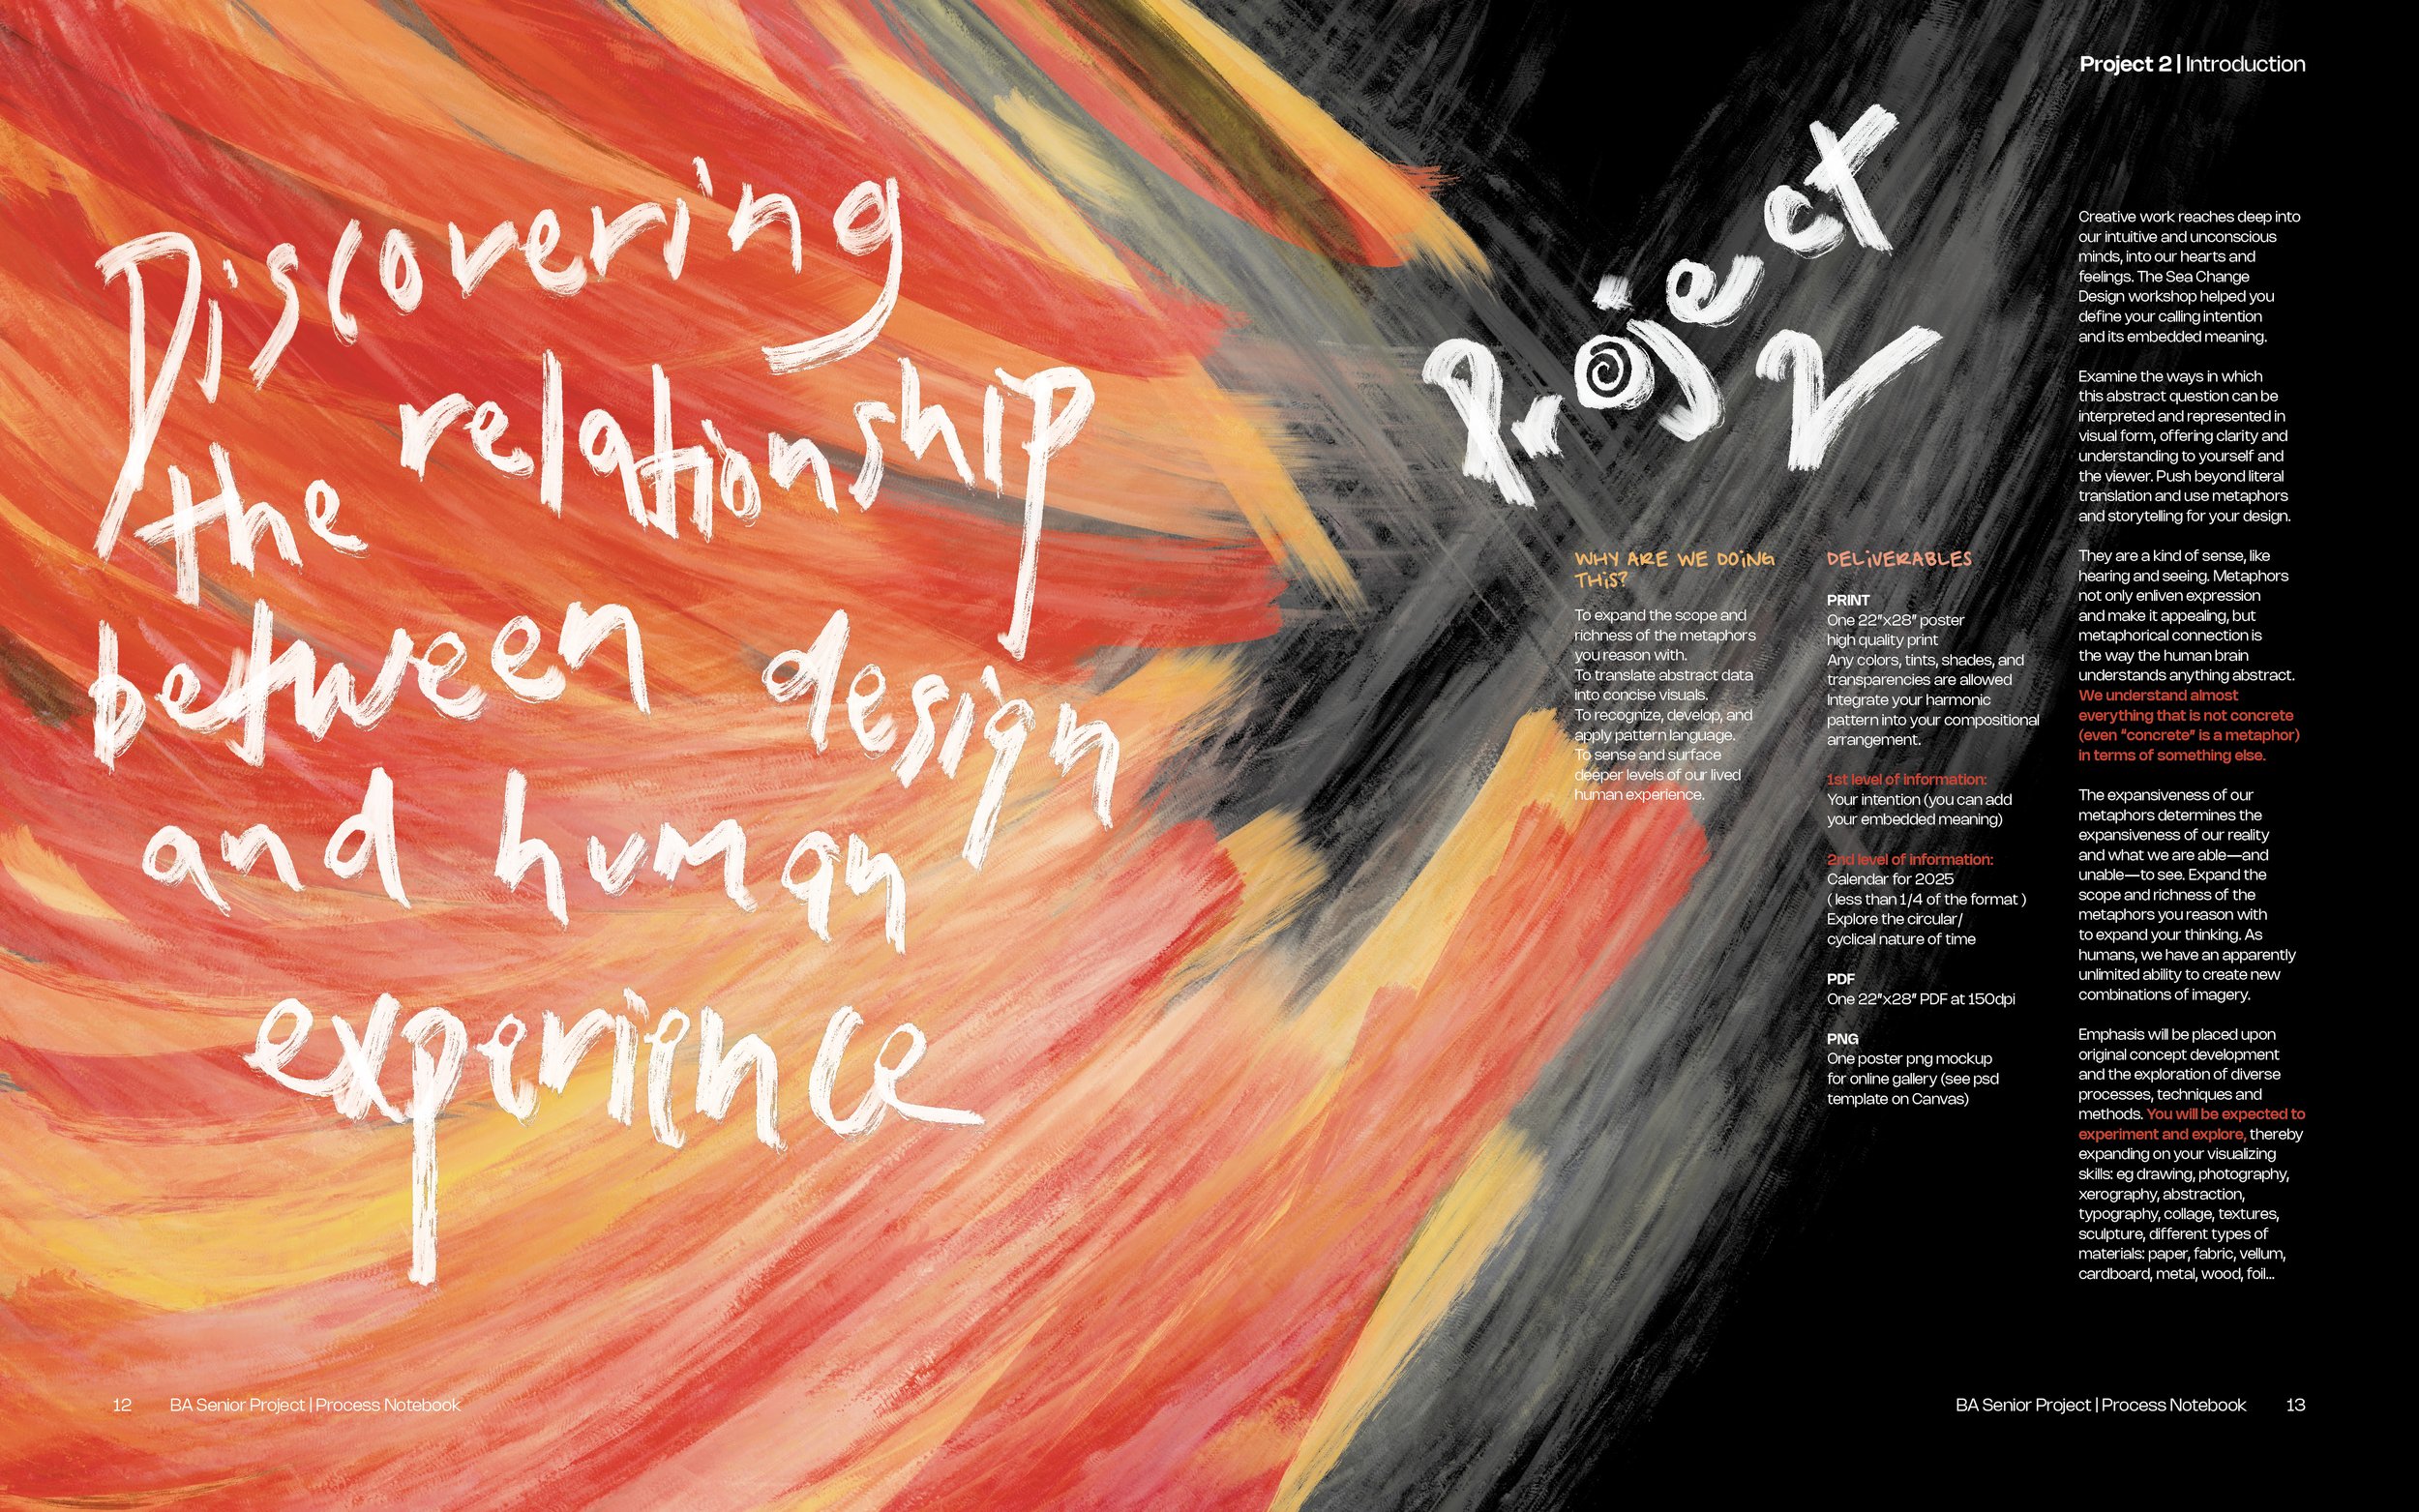 Discovering
the relationship
between design
and human
experience
12 BA Senior Project | Process Notebook
Project 2 | Introduction
Project
2
WHY ARE WE DOiNG
THiS?
To expand the scope and
richness of the metaphors
you reason with.
To translate abstract data
into concise visuals.
To recognize, develop, and
apply pattern language.
To sense and surface
deeper levels of our lived
human experience.
DELiVERABLES
PRINT
One 22”x28” poster
high quality print
Any colors, tints, shades, and
transparencies are allowed
Integrate your harmonic
pattern into your compositional
arrangement.
1st level of information:
Your intention (you can add
your embedded meaning)
2nd level of information:
Calendar for 2025
( less than 1/4 of the format )
Explore the circular/
cyclical nature of time
PDF
One 22”x28” PDF at 150dpi
PNG
One poster png mockup
for online gallery (see psd
template on Canvas)
Creative work reaches deep into
our intuitive and unconscious
minds, into our hearts and
feelings. The Sea Change
Design workshop helped you
define your calling intention
and its embedded meaning.
Examine the ways in which
this abstract question can be
interpreted and represented in
visual form, offering clarity and
understanding to yourself and
the viewer. Push beyond literal
translation and use metaphors
and storytelling for your design.
They are a kind of sense, like
hearing and seeing. Metaphors
not only enliven expression
and make it appealing, but
metaphorical connection is
the way the human brain
understands anything abstract.
We understand almost
everything that is not concrete
(even “concrete” is a metaphor)
in terms of something else.
The expansiveness of our
metaphors determines the
expansiveness of our reality
and what we are able—and
unable—to see. Expand the
scope and richness of the
metaphors you reason with
to expand your thinking. As
humans, we have an apparently
unlimited ability to create new
combinations of imagery.
Emphasis will be placed upon
original concept development
and the exploration of diverse
processes, techniques and
methods. You will be expected to
experiment and explore, thereby
expanding on your visualizing
skills: eg drawing, photography,
xerography, abstraction,
typography, collage, textures,
sculpture, different types of
materials: paper, fabric, vellum,
cardboard, metal, wood, foil...
BA Senior Project | Process Notebook 13